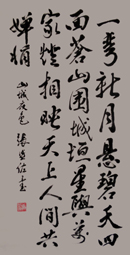 一弯新月悬碧天四
面苍山围城垣星兴万
家灯相映天上人间共
婵娟
山城夜色